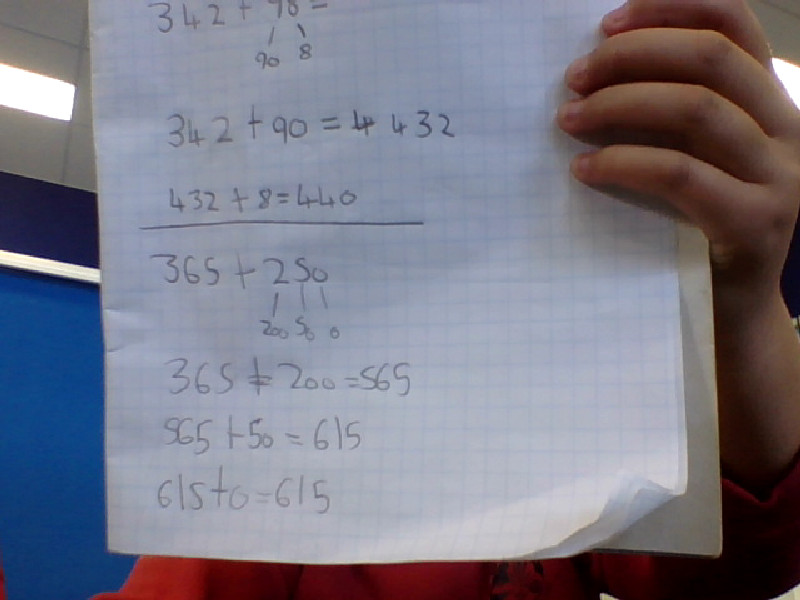 342 + 98 =
90 8
342 + 90 = 4 432
432 + 8 = 440
365 + 250
200 50 0
365 + 200 = 565
565 + 50 = 615
615 + 0 = 615